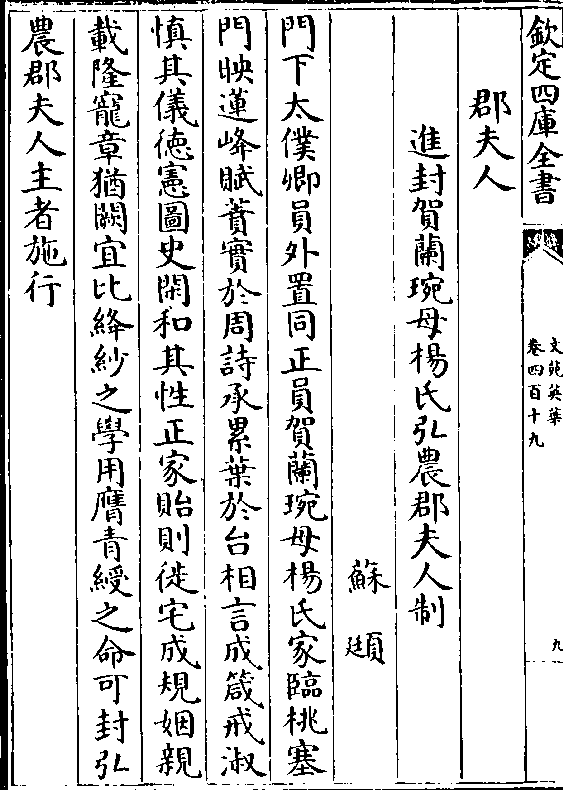 欽定四庫全書
文苑英華
卷四百十九
九
郡夫人
進封賀蘭琬母楊氏弘農郡夫人制
蘇頲
門下太僕卿員外置同正員賀蘭琬母楊氏家臨桃塞
門映蓮峰賦蕡實於周詩承累葉於台相言成箴戒淑
慎其儀徳憲圖史閑和其性正家貽則徙宅成規姻親
載隆寵章猶闕宜比絳紗之學用膺青綬之命可封弘
農郡夫人主者施行